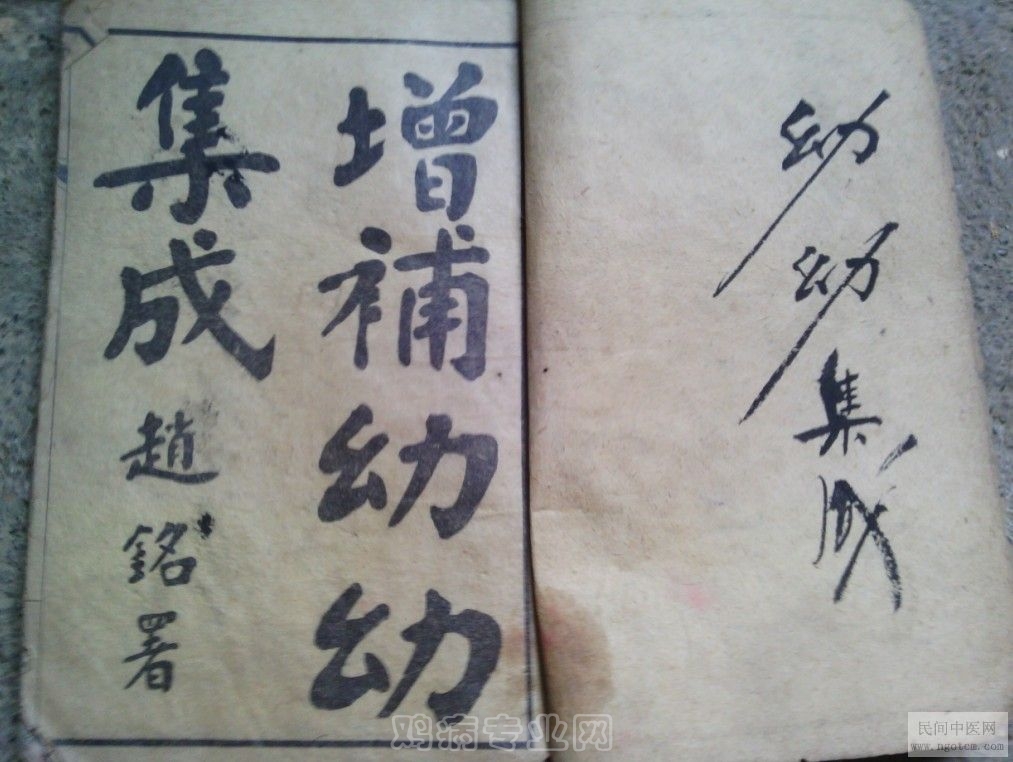 幼幼集成
增補幼幼
集成
趙銘署
鸡病专业网
民间中医网
www.ngotcm.com